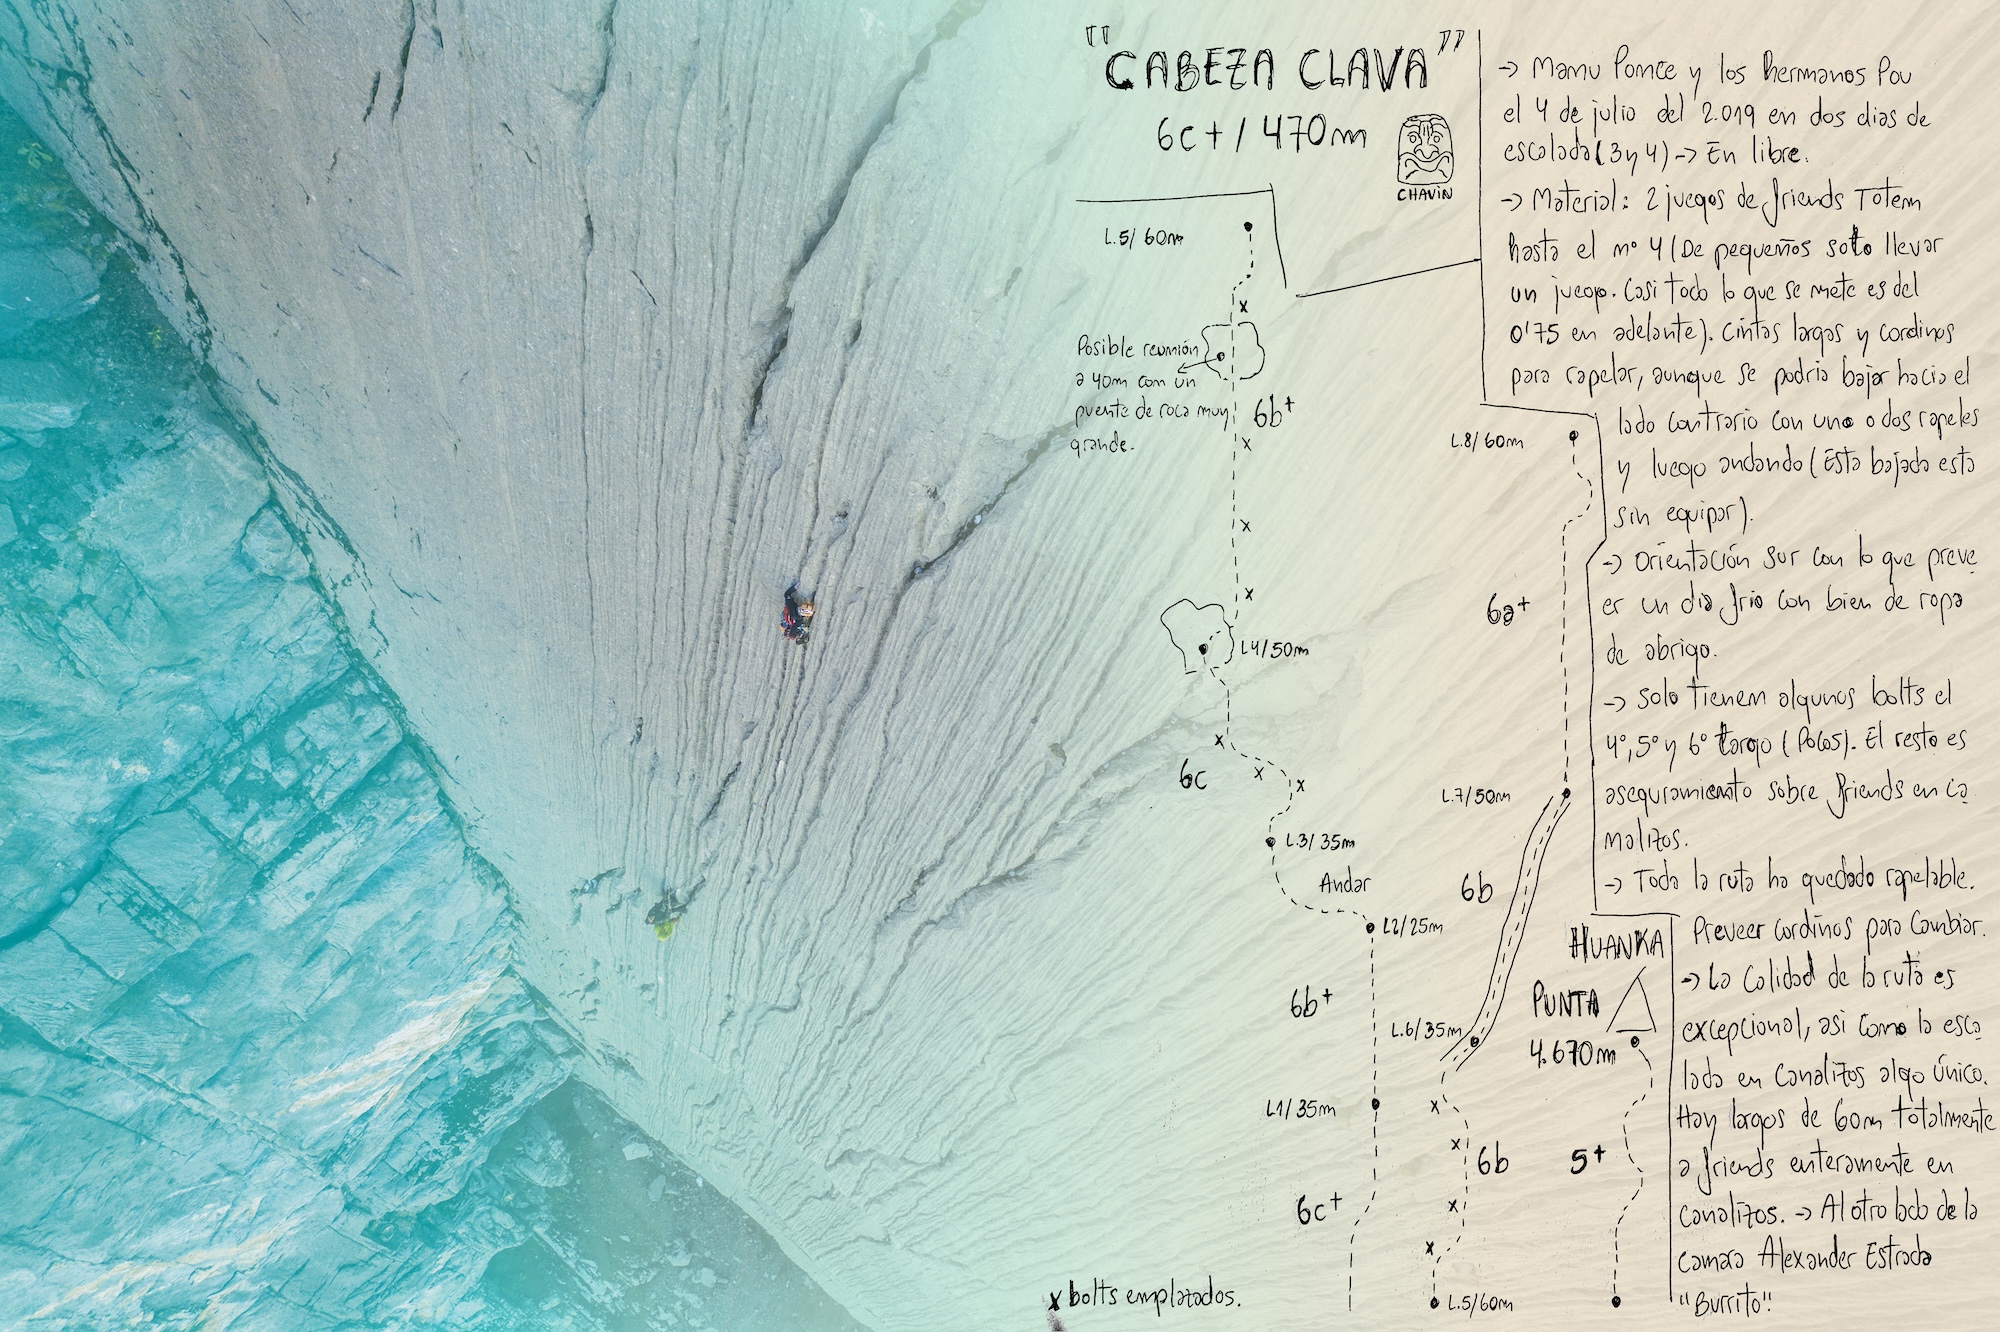 "CABEZA CLAVA"
6c+ / 470m
CHAVIN
L.5/ 60m
Posible reunión
a 40m con un
puente de roca muy
grande.
6b+
L4/50m
6c
L.3/35m
Andar
L2/25m
6b+
L1/35m
6c+
x bolts emplazados.
L.8/60m
6a+
L.7/50m
6b
L.6/35m
6b
L.5/60m
HUANKA
PUNTA
4.670m
5+
-> Manu Ponce y los hermanos Pou
el 4 de julio del 2.019 en dos dias de
escalada (3 y 4) -> En libre.
-> Material: 2 juegos de friends Totem
hasta el nº 4 (De pequeños solo llevar
un juego. Casi todo lo que se mete es del
0'75 en adelante). Cintas largas y cordinos
para rapelar, aunque se podria bajar hacia el
lado contrario con uno o dos rapeles
y luego andando (Esta bajada esta
sin equipar).
-> Orientación sur con lo que preve
er un dia frio con bien de ropa
de abrigo.
-> Solo tienen algunos bolts el
4º, 5º y 6º largo (Pocos). El resto es
aseguramiento sobre friends en ca
nalizos.
-> Toda la ruta ha quedado rapelable.
Preveer cordinos para cambiar.
-> La Calidad de la ruta es
excepcional, asi como la esca
lada en canalizos algo único.
Hay largos de 60m totalmente
a friends enteramente en
canalizos. -> Al otro lado de la
camara Alexander Estrada
"Burrito".